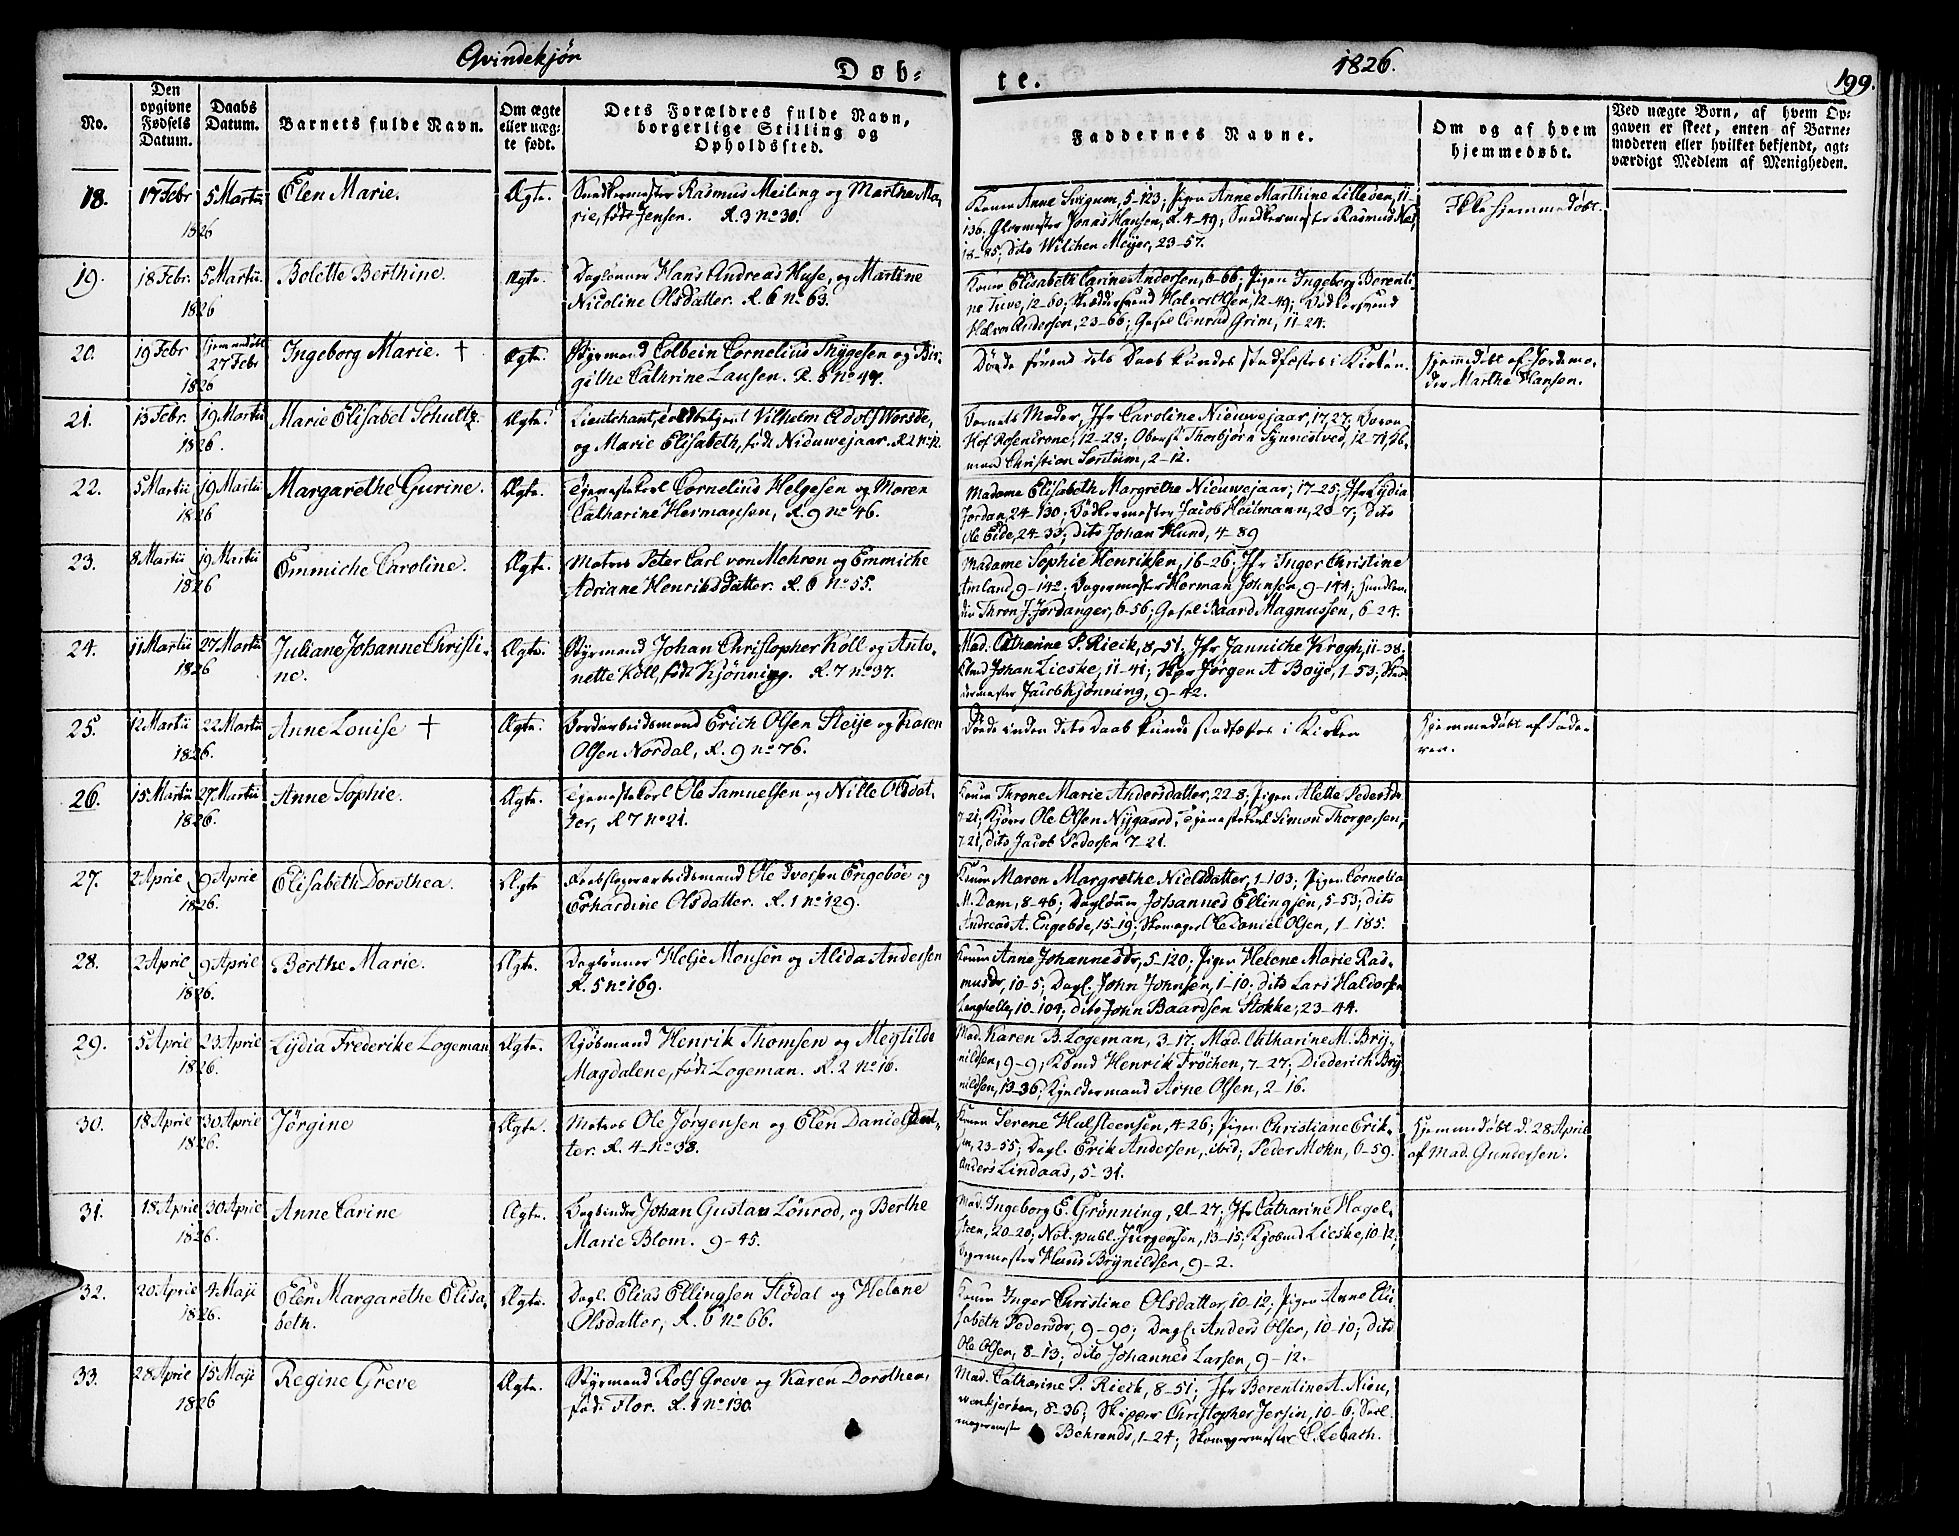 Qvindekjøn
Døb-
te.
1826.
199.
No.
Den opgivne Fødsels Datum.
Daabs Datum.
Barnets fulde Navn.
Om ægte eller uægte født.
Dets Forældres fulde Navn, borgerlige Stilling og Opholdssted.
Faddernes Navne.
Om og af hvem hjemmedøbt.
Ved uægte Børn, af hvem Opgaven er skeet, enten af Barnemoderen eller hvilket bekjendt, agtværdigt Medlem af Menigheden.
18. 17 Febr 5 Martii Elen Marie. Ægte. Snedkermester Rasmus Meiling og Marthe Ma-
1826 rie, født Jensen. R. 3 No 30.
Anne Marthine Lillesen, 11-
136; Glarmester Jonas Hansen, R. 4-49, Snedkermester Rasmus
18-85; dito Wilchen Meyer, 23-57.
Ikke hjemmedøbt.
19. 18 Febr. 5 Martii Bolette Berthine. Ægte. Daglønner Hans Andreas Huse, og Martine
1826 Nicoline Olsdatter. R. 6 No 63.
Konen Elisabeth Carine Andersen, 6-66; Pigen Ingeborg Berenti-
ne Tuve, 12-60; 12-49;
Halvor Andersen, 23-66; Gesel Conrad Grim, 11-24.
20. 19 Febr hjemmedøbt 27 Febr Ingeborg Marie. † Ægte. Styrmand Colbein Cornelius Thygesen og Bir-
1826 githe Cathrine Lausen. R. 8 No 47.
Døde førend dets Daab kunde stadfæstes i Kirken.
Hjemmedøbt af Jordemo-
der Marthe Hansen.
21. 13 Febr. 19 Martii Marie Elisabet Schultz. Ægte. Vilhelm Adolf Worsøe,
1826. og Marie Elisabeth, født Nieuwejaar. R. 2 No 12.
Barnets Moder, Jfr Caroline Nieuwejaar, 17, 27; Baron
Hof Rosencrone, 12-23; Oberst Thorbjørn Synnestved, 12-71,
Christian Sontum, 2-12.
22. 5 Martii 19 Martii Margarethe Gurine. Ægte. Tjenestekarl Cornelius Helgesen og Maren
1826 Catharine Hermansen, R. 9 No 46.
Madame Elisabeth Margrethe Nieuwejaar, 17-25; Jfr Lydia
Jordan, 24-130; Bødkermester Jacob Heilmann, 20-7; dito
Ole Eide, 24-33; dito Johan Hund, 4-89
23. 8 Martii 19 Martii Emmiche Caroline. Ægte. Matros Peter Carl von Mehren og Emmiche
1826 Adriane Henriksdatter. R. 6 No 55.
Madame Sophie Henriksen, 16-26; Jfr Inger Christine
Amland, 9-142; Bagermester Herman Johnsen, 9-144;
Thron J. Jordanger, 6-56; Gesel Baard Magnussen, 6-24.
24. 11 Martii 27 Martii Juliane Johanne Christi- Ægte. Styrmand Johan Christopher Koll og Anto-
1826 ne. nette Koll, født Kjønning. R. 7 No 37.
Mad. Catharine P. Rieck, 8-51; Jfr Janniche Krogh, 11-38;
Johan Lieske, 11-41; Jørgen A. Boye, 1-53;
Jacob Kjønning, 9-42.
25. 12 Martii 22 Martii Anne Louise † Ægte. Jordarbeidsmand Erich Olsen Steije og Karen
1826. Olsen Nordal, R. 9 No 76.
Døde inden dets Daab kunde stadfæstes i Kirken
Hjemmedøbt af Fade-
ren.
26. 15 Martii 27 Martii Anne Sophie. Ægte. Tjenestekarl Ole Samuelsen og Nille Olsdat-
1826. ter, R. 7 No 21.
Konen Throne Marie Andersdatter, 22-8; Pigen Alette Pedersdr
7-21; Ole Olsen Nygaard; Tjenestekarl Simon Thorgersen,
7-21, dito Jacob Pedersen 7-21.
27. 2 Aprie 9 Aprie Elisabeth Dorothea. Ægte Reebslagerarbeidsmand Ole Iversen Engebøe og
1826. Erhardine Olsdatter. R. 1 No 129.
Konen Maren Margrethe Nielsdatter, 1-103; Pigen Cornelia
M. Dam, 8-46; Dagløner Johannes Ellingsen, 5-53; dito
Andreas A. Engebøe, 15-19; Daniel Olsen, 1-185.
28. 2 April 9 April Berthe Marie. Ægte. Daglønner Helje Monsen og Alida Andersen
1826. R. 5 No 169.
Konen Anne Johannesdr, 5-120; Pigen Helene Marie Ras-
musdr, 10-5; Dagl. John Johnsen, 1-10; dito Lars Haldorsen
Langhelle, 10-104; dito John Baardsen Stokke; 23-44.
29. 5 Aprie 23 Aprie Lydia Frederike Logeman Ægte. Kjøbmand Henrik Thomsen og Megtilde
1826. Magdalene, født Logeman. R. 2 No 16.
Mad. Karen B. Logeman, 3-17, Mad. Chtharine M. Bry-
nildsen, 9-9; Kbmd Henrik Fröchen, 7-27; Diederich Bry-
nildsen, 13-36; Kjeldermand Arne Olsen, 2-16.
30. 18 Aprie 30 Aprie Jørgine Ægte. Matros Ole Jørgensen og Elen Danielsdat-
1826. ter. R. 4 No 38.
Konen Serene Halsteensen, 4-26; Pigen Christiane Erik-
sen, 23-55; Dagl. Erik Andersen, ibid; Peder Mohn, 6-59.
Anders Lindaas, 5-31.
Hjemmedøbt d. 28 April
af Mad. Gundersen.
31. 18 Aprie 30 Aprie Anne Carine Ægte. Bogbinder Johan Gustav Lönrod, og Berthe
1826. Marie Blom. 9-45.
Mad. Ingeborg E. Grønning, 21-27; Jfr Catharine Hagel-
steen, 20-20; Not. publ. Jürgensen, 13-15; Kjøbmd Lieske, 10-12;
Bagermester Hans Brynildsen, 9-2.
32. 20 Aprie 4 Maji Elen Margarethe Elisa- Ægte. Dagl. Elias Ellingsen Stødal og Helene
1826. beth. Olsdatter, R. 6 No 66.
Konen Inger Christine Olsdatter, 10-12; Pigen Anne Eli-
sabeth Pedersdr, 9-90; Dagl. Anders Olsen, 10-10; dito
Ole Olsen, 8-13; dito Johannes Larsen, 9-12.
33. 28 Aprie 15 Maji Regine Greve Ægte. Styrmand Rolf Greve og Karen Dorothea,
1826 født Flor. R. 1 No 130.
Mad. Catharine P. Rieck, 8-51; Jfr Berentine A. Nieu-
8-36; Skipper Christopher Jersin, 10-6; Seil-
magermest Behrends, 1-24; Skomagermester